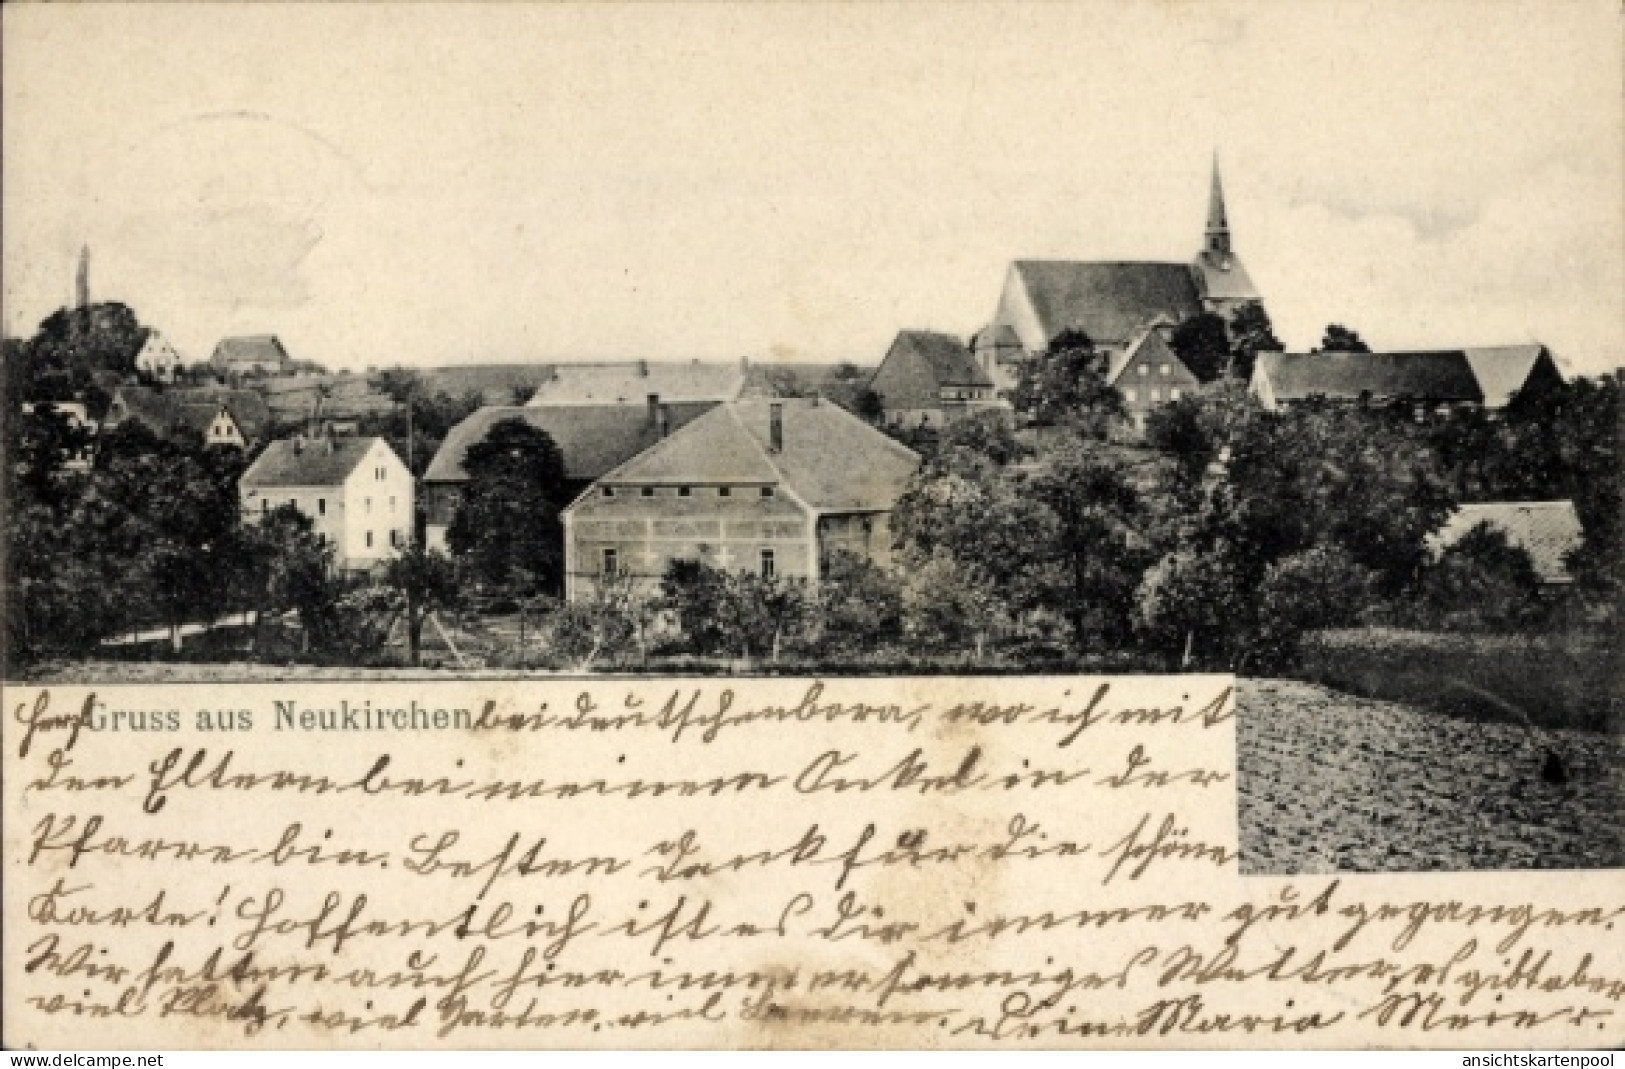 Herzl. Gruss aus Neukirchen bei deutschenbora, wo ich mit
den Eltern bei meinem Onkel in der
Pfarre bin. Besten Dank für die schöne
Karte! Hoffentlich ist es dir immer gut gegangen.
Wir hatten auch hier immer sonniges Wetter, es gibt aber
viel Platz, viel Garten, viel Beeren. Deine Maria Meier.
www.delcampe.net
ansichtskartenpool